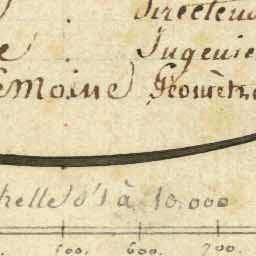 Directeu
Ingenie
emoine Géomètr
helle d'1 à 10.000
500. 600. 700.